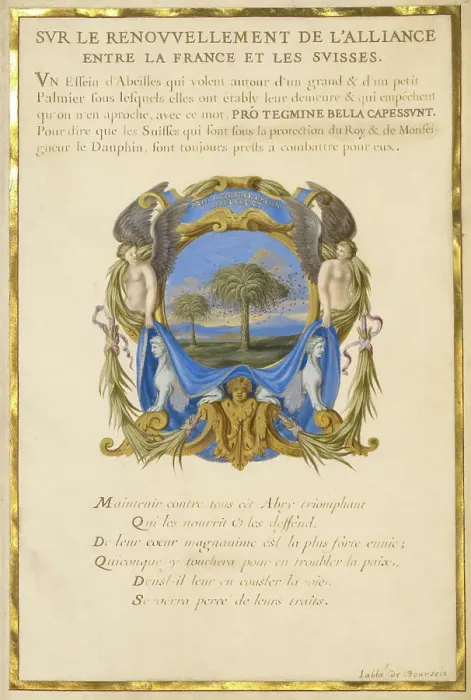 SVR LE RENOVVELLEMENT DE L'ALLIANCE
ENTRE LA FRANCE ET LES SVISSES.
VN Essein d'Abeilles qui volent autour d'un grand & d'un petit
Palmier sous lesquels elles ont étably leur demeure & qui empéchent
qu'on n'en aproche, avec ce mot, PRO TEGMINE BELLA CAPESSVNT.
Pour dire que les Suisses qui sont sous la protection du Roy & de Monsei-
gneur le Dauphin, sont toujours prests a combattre pour eux.
PRO TEGMINE BELLA
CAPESSVNT
Maintenir contre tous cét Abry triomphant
Qui les nourrit & les deffend,
De leur cœur magnanime est la plus forte envie;
Quiconque y touchera pour en troubler la paix,
Deust-il leur en couster la vie,
Se verra percé de leurs traits.
l'abbé de Bourzeis